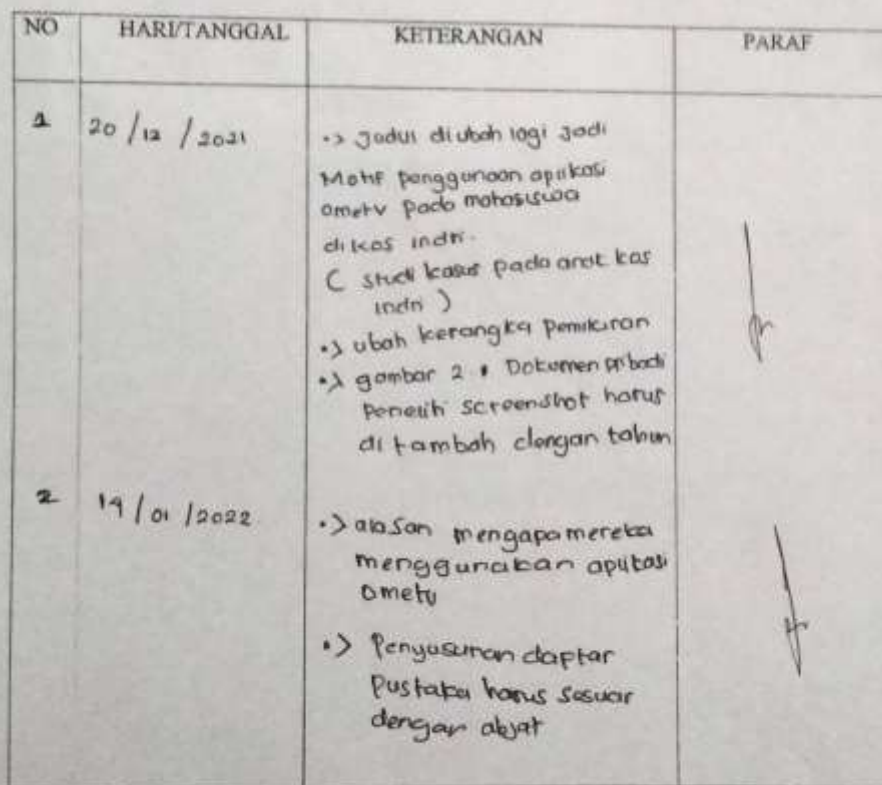 NO HARI/TANGGAL KETERANGAN PARAF
1 20/12/2021 •> Judul diubah lagi jadi
Motif penggunaan aplikasi
ometv pada mahasiswa
di kos indri.
( studi kasus pada anak kos
indri )
•> ubah kerangka pemikiran
•> gambar 2.1 Dokumen pribadi
Peneliti screenshot harus
di tambah dengan tahun
2 19/01/2022 •> alasan mengapa mereka
menggunakan aplikasi
ometv
•> Penyusunan daptar
Pustaka harus sesuai
dengan abjat